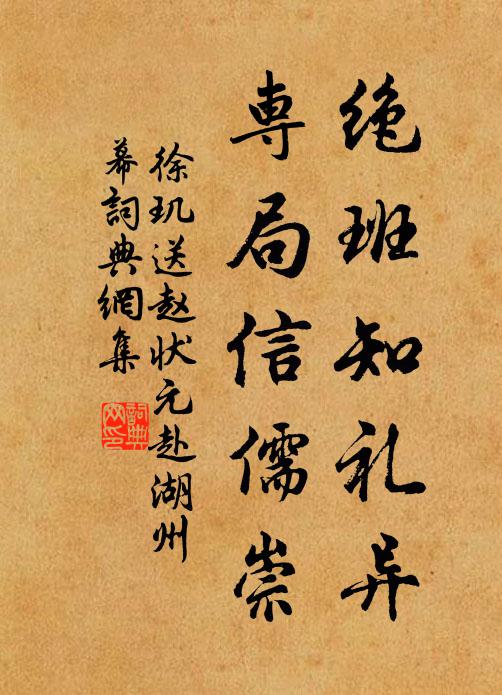 绝班知礼异
専局信儒崇
徐玑送赵状元赴湖州
幕詞典網集
詞典网印